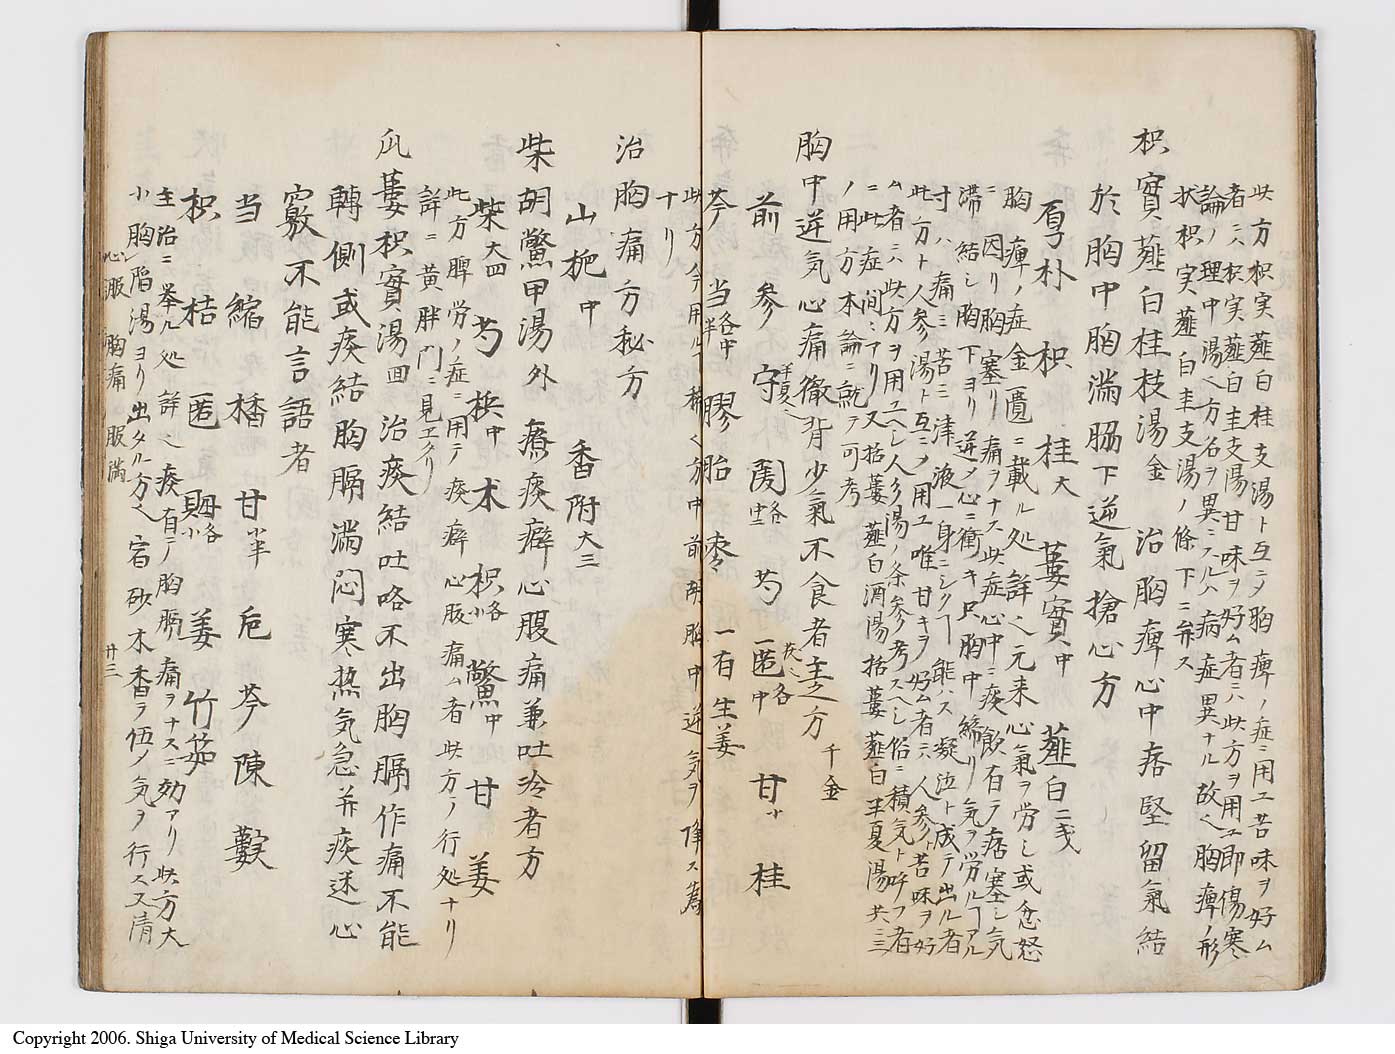 此方枳実薤白桂支湯ト互ニシテ胸痺ノ症ニ用ユ苦味ヲ好ム
者ニハ枳実薤白圭支湯甘味ヲ好ム者ニハ此方ヲ用ユ即傷寒
論ノ理中湯也方名ヲ異ニスルハ病症異ナル故也胸痺ノ形
状枳実薤白圭支湯ノ條下ニ弁ス
枳實薤白桂枝湯金 治胸痺心中痞堅留氣結
於胸中胸満脇下逆氣搶心方
厚朴 枳 桂大 蔞實中 薤白二戔
胸痺ノ症金匱ニ載ル処詳也元来心氣ヲ労シ或忿怒
ニ因リ胸塞リ痛ヲナス此症心中ニ痰飲有テ痞塞シ気
滞結シ胸下ヨリ逆メ心ニ衝キ只胸中締リ気ヲ労ルヿアル
寸ハ痛ミ苦ミ津液一身ニシクヿ能ハス凝泣ト成テ出ル者
此方ト人参湯ト互ニメ用ユ唯甘キヲ好ム者ニハ人参ト苦味ヲ好
ム者ニハ此方ヲ用ユヘシ人参湯ノ条参考スヘシ俗ニ積気ト呼フ者
ニ此症間ニアリ又括蔞薤白酒湯括蔞薤白半夏湯共ニ三
ノ用方本論ニ就テ可考
胸中逆気心痛徹背少氣不食者主之方 千金
前 参 守半夏也 芍 各中 甘 桂
芩 当各中 膠飴 枣 一有生姜
此方今用ルヿ稀也方中前胡胸中逆気ヲ降ス為
ナリ
治胸痛方秘方
山栀中 香附大三
柴胡鱉甲湯外 療痰癖心腹痛兼吐冷者方
柴大四 芍 梹中 术 枳各小 鱉中 甘 姜
此方脾労ノ症ニ用テ痰癖心腹痛ム者此方ノ行処ナリ
詳ニ黄胖門ニ見エタリ
瓜蔞枳實湯回 治痰結吐咯不出胸膈作痛不能
轉側或痰結胸膈満悶寒热気急并痰迷心
竅不能言語者
当 縮 橘 甘 梔 芩 陳
枳 桔 各小 姜 竹茹
主治ニ挙ル処詳也痰有テ胸膈痛ヲナスニ効アリ此方大
小胸陥湯ヨリ出タル方也宿砂木香ヲ伍メ気ヲ行ス又清
心腹 胸痛 腹満 廿三
Copyright 2006. Shiga University of Medical Science Library